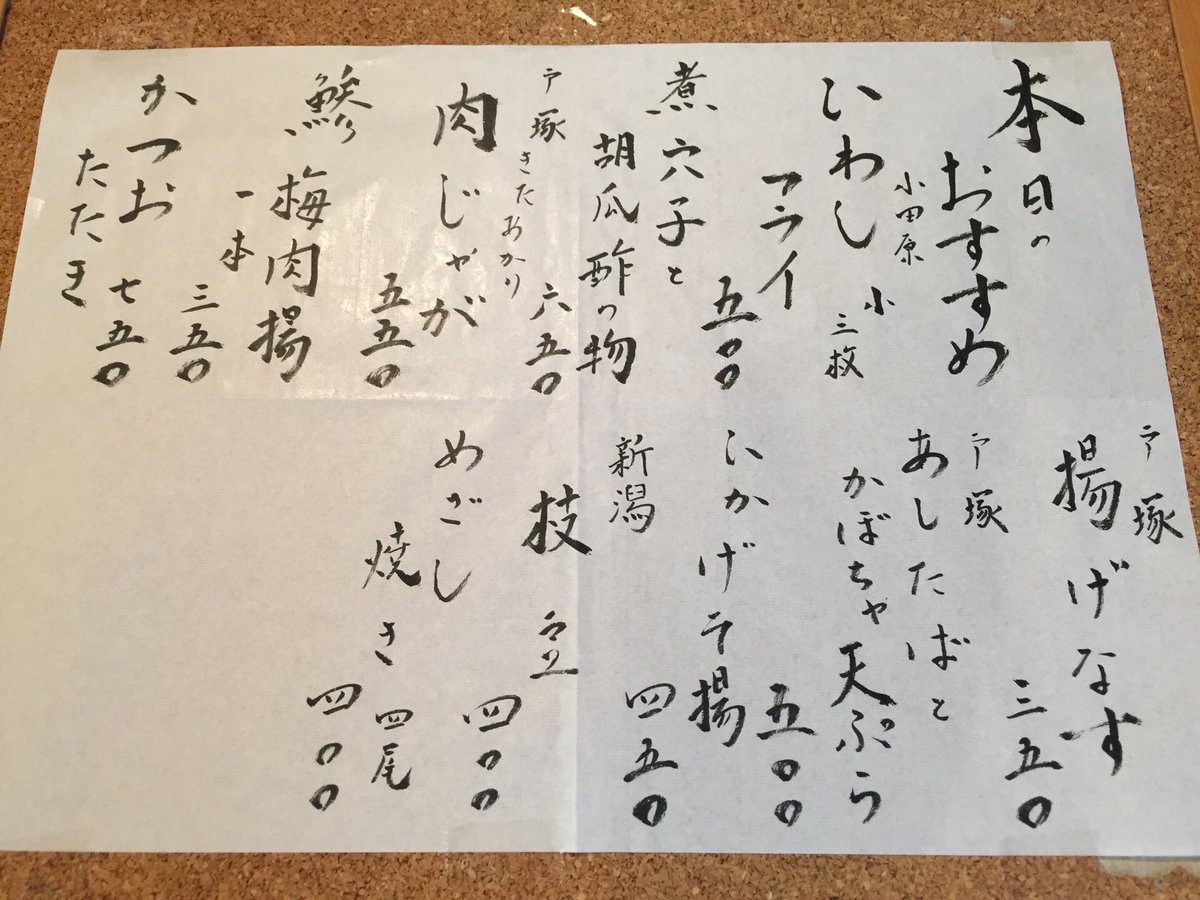 本日の
おすすめ
小田原
いわし 小 三枚
フライ
五〇〇
煮穴子と
胡瓜酢の物
六五〇
戸塚きたあかり
肉じゃが
五五〇
鯵梅肉揚
一本
三五〇
かつお
たたき
七五〇
戸塚
揚げなす
三五〇
戸塚
あしたばと
かぼちゃ天ぷら
五〇〇
いかげそ揚
四五〇
新潟
枝豆
四〇〇
めざし
焼き 四尾
四〇〇